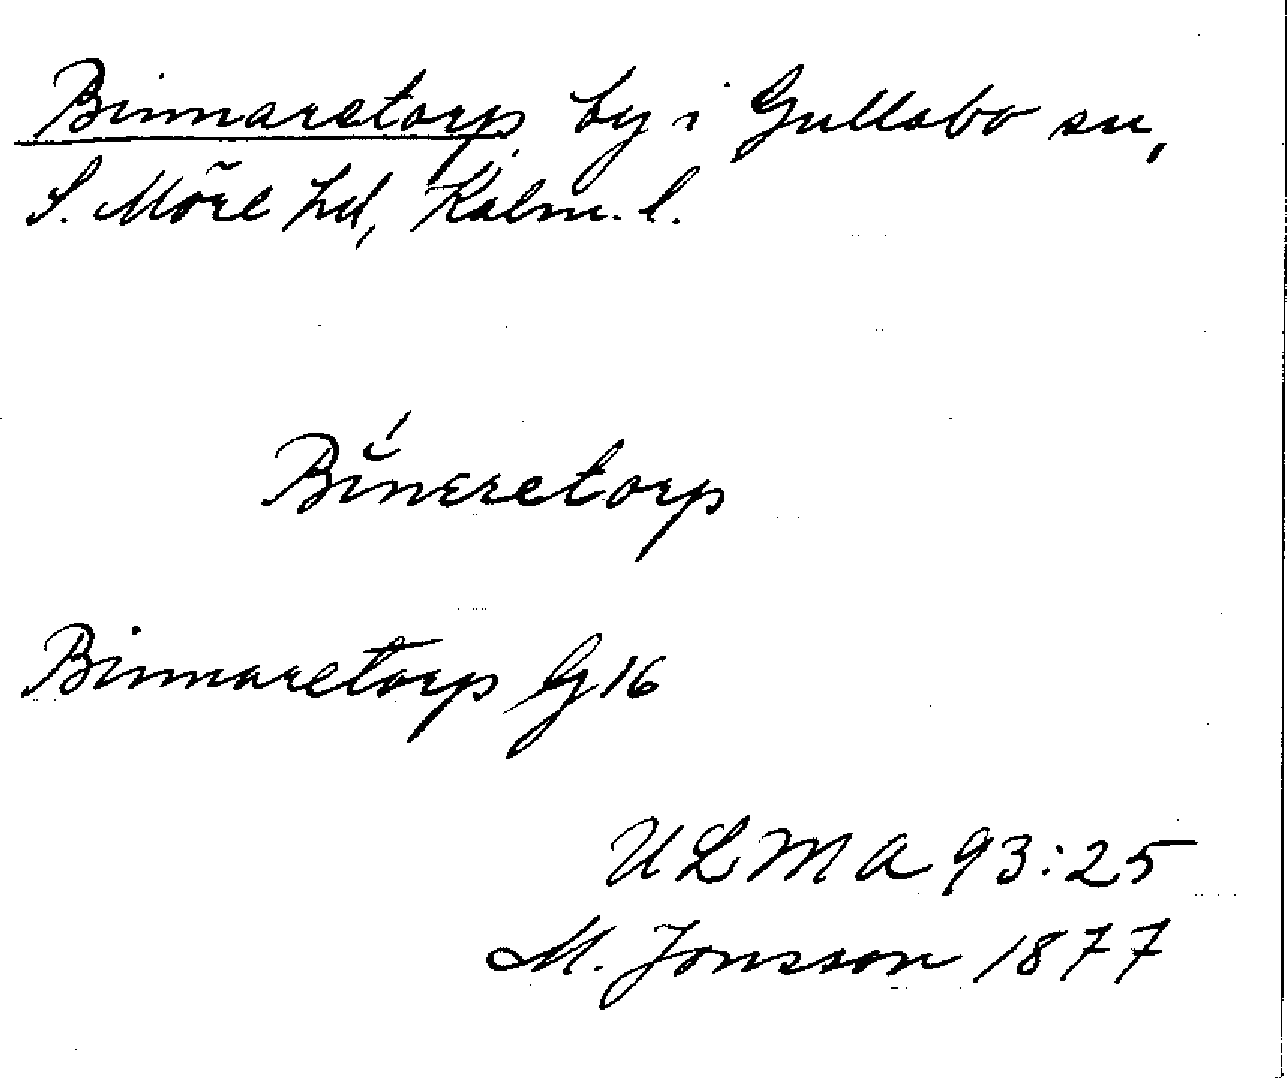 Binnaretorp by i Gullabo sn,
S. Möre hd, Kalm. l.
Bĭ́nεretorp
Binnaretorp G 16
ULMA 93:25
M. Jonsson 1877